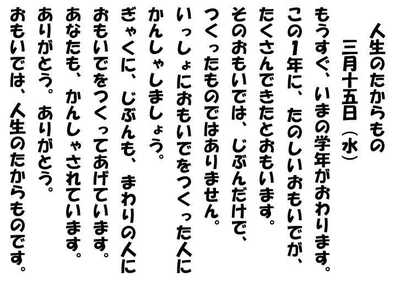 人生のたからもの
三月十五日(水)
もうすぐ、いまの学年がおわります。
この1年に、たのしいおもいでが、
たくさんできたとおもいます。
そのおもいでは、じぶんだけで、
つくったものではありません。
いっしょにおもいでをつくった人に
かんしゃしましょう。
ぎゃくに、じぶんも、まわりの人に
おもいでをつくってあげています。
あなたも、かんしゃされています。
ありがとう。ありがとう。
おもいでは、人生のたからものです。